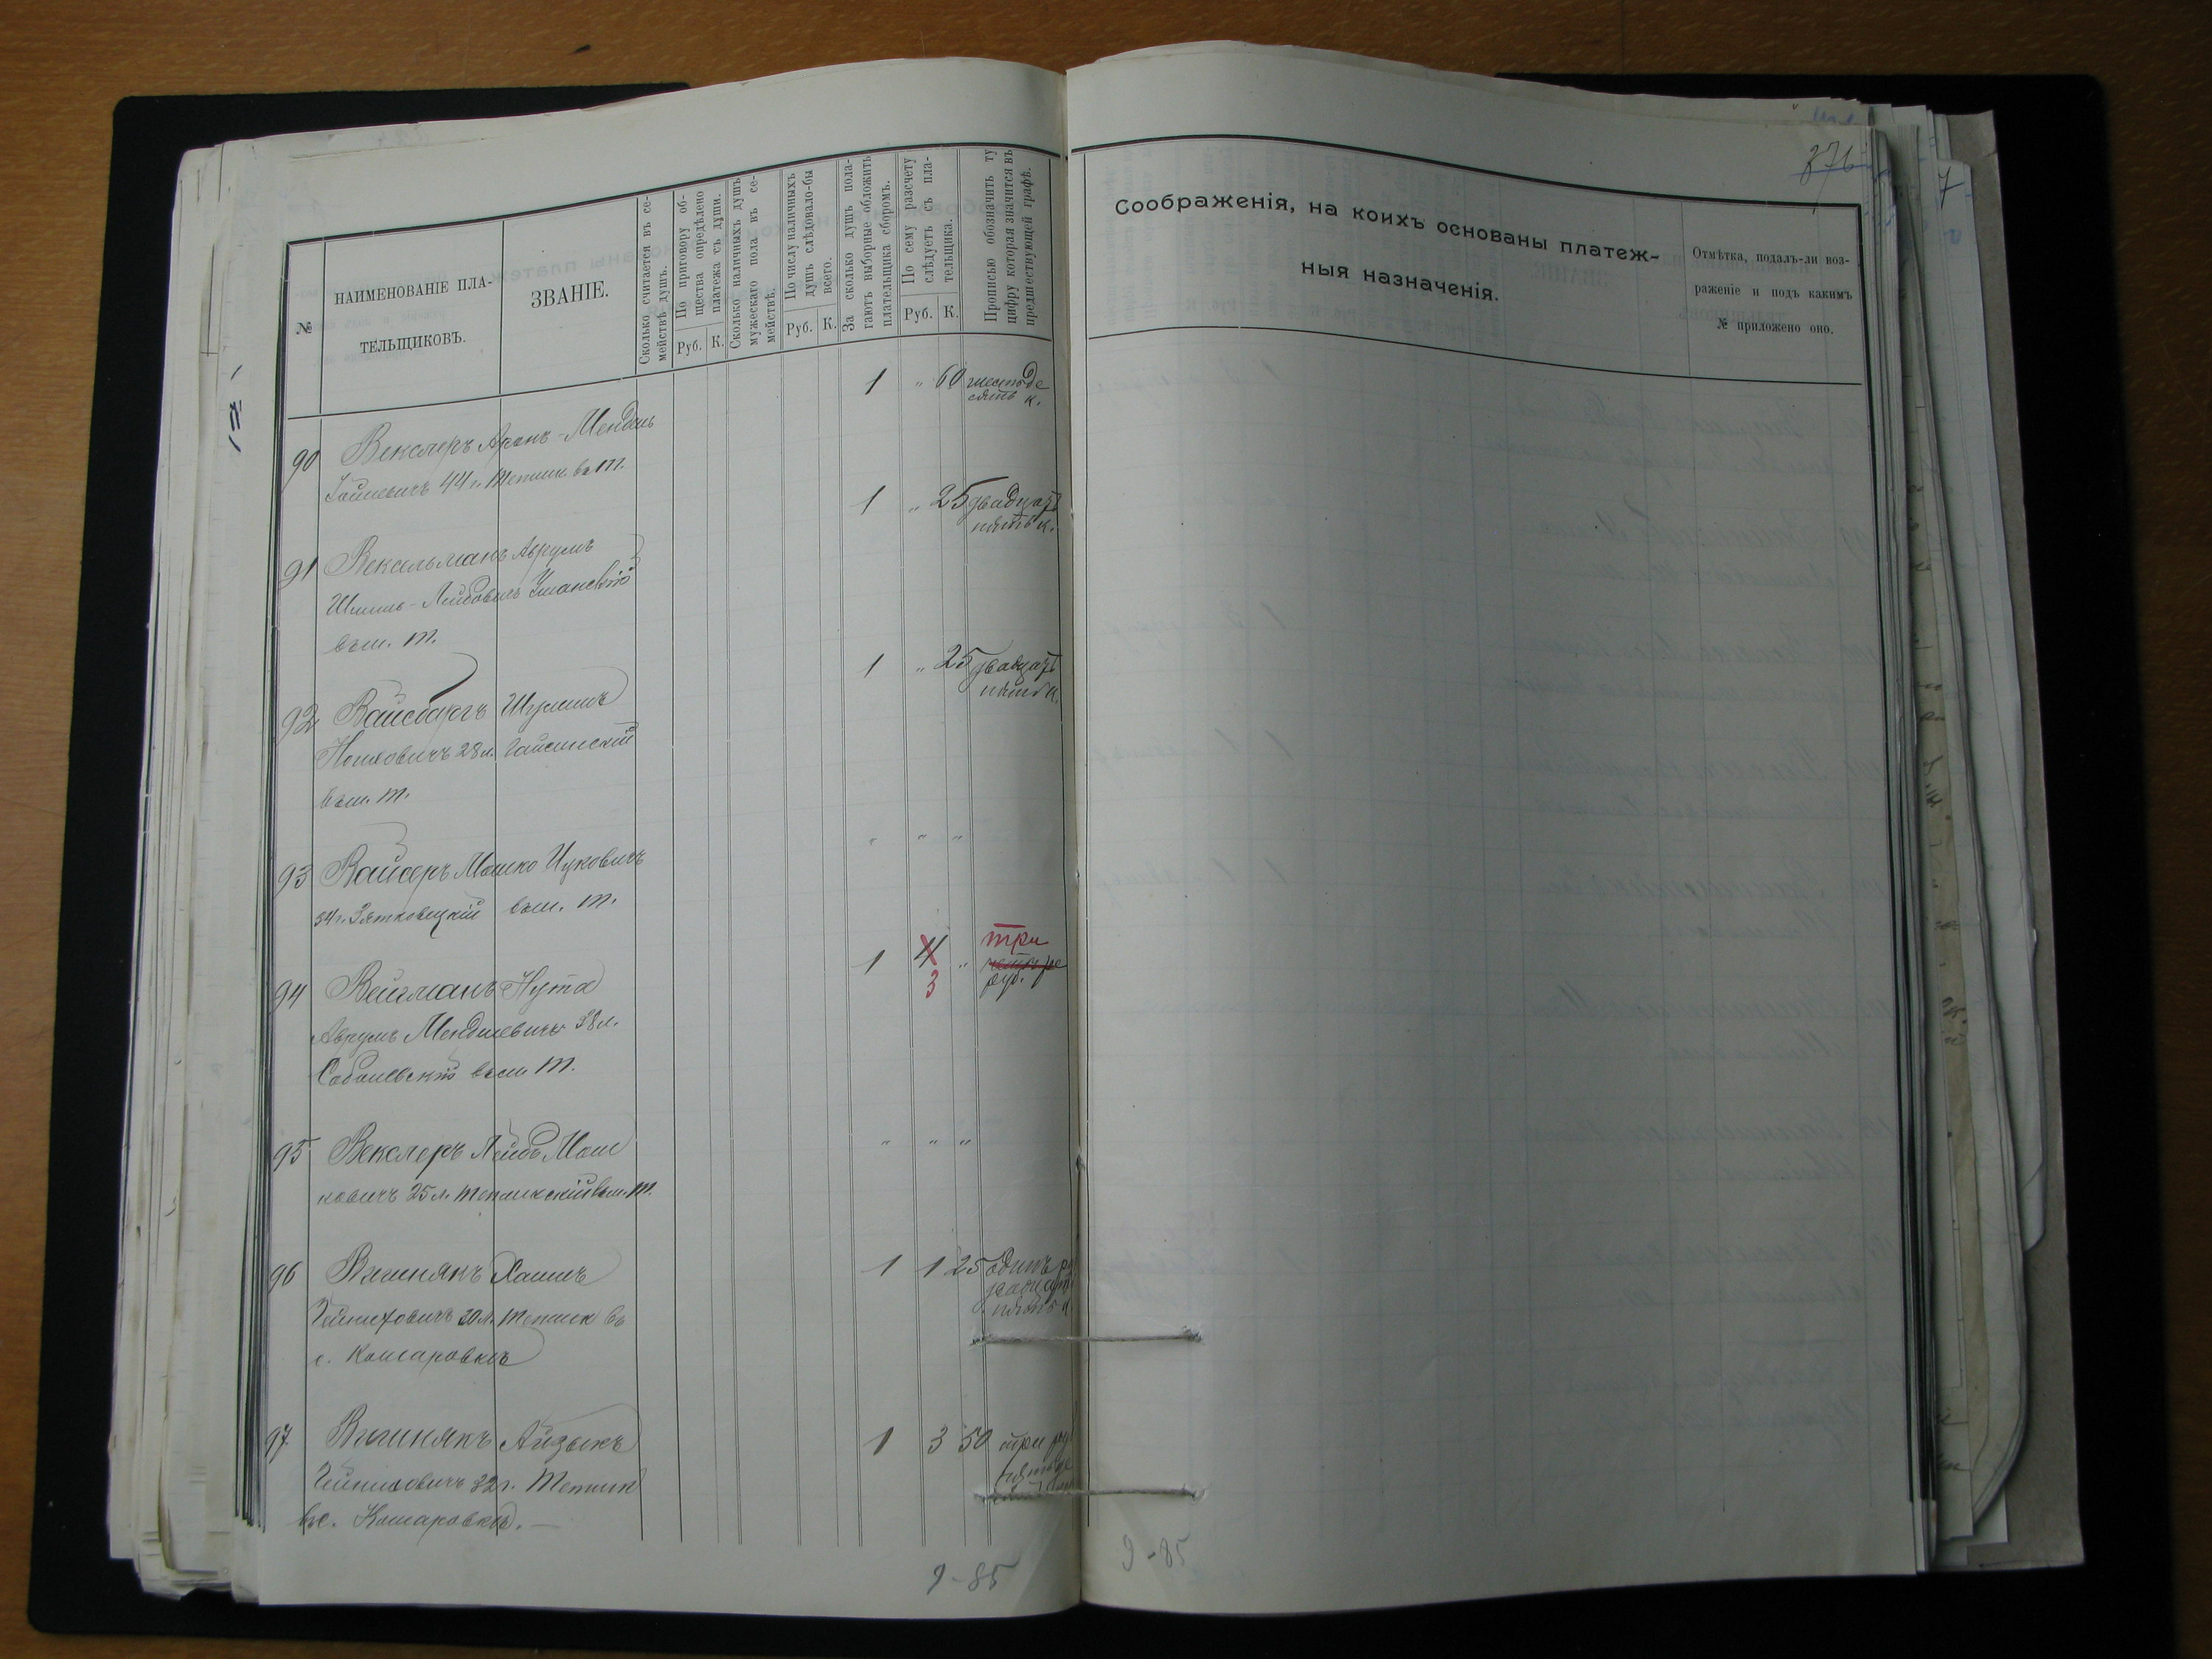 376
№
НАИМЕНОВАНІЕ ПЛА-
ТЕЛЬЩИКОВЪ.
ЗВАНІЕ.
Сколько считается въ се-
мействѣ душъ.
По приговору об-
щества опредѣлено
платежа съ души.
Руб. К.
Сколько наличныхъ душъ
мужескаго пола въ се-
мействѣ.
По числу наличныхъ
душъ слѣдовало-бы
всего.
Руб. К.
За сколько душъ пола-
гаютъ выборные обложить
плательщика сборомъ.
По сему разсчету
слѣдуетъ съ пла-
тельщика.
Руб. К.
Прописью обозначить ту
цифру которая значится въ
предшествующей графѣ.
Соображенія, на коихъ основаны платеж-
ныя назначенія.
Отмѣтка, подалъ-ли воз-
раженіе и подъ какимъ
№ приложено оно.
1 " 60 шестьде
сятъ к.
90 Векслеръ Аронъ-Мендель
44 г. Теплик. въ т.
1 " 25 двадцать
пять к.
91 Вексельманъ Аврумъ
Шмиль-Лейбовичъ Уманскій
въ м. Т.
1 " 25 двадцать
пять к.
92 Вайсбургъ
28 л. Гайсинскій
въ м. Т.
" " "
93 Вайсеръ Мошко Ицковичъ
54 г. Зятковецкій въ м. Т.
1 4 " три
3 четыре
руб.
94 Вейцманъ Нута
Аврумъ Менделевичъ 38 л.
Соболевскій въ м. Т.
" " "
95 Векслеръ Лейбъ Мош
ковичъ 25 л. Тепликскій въ м. Т.
1 1 25 одинъ р.
двадцать
пять к.
96 Вишнякъ Хаимъ
30 л. Теплик въ
с. Комаровкѣ
1 3 50 три руб
пятьде
97 Вишнякъ Айзыкъ
32 г. Теплик
въ с. Комаровкѣ. —
9-85
9-85